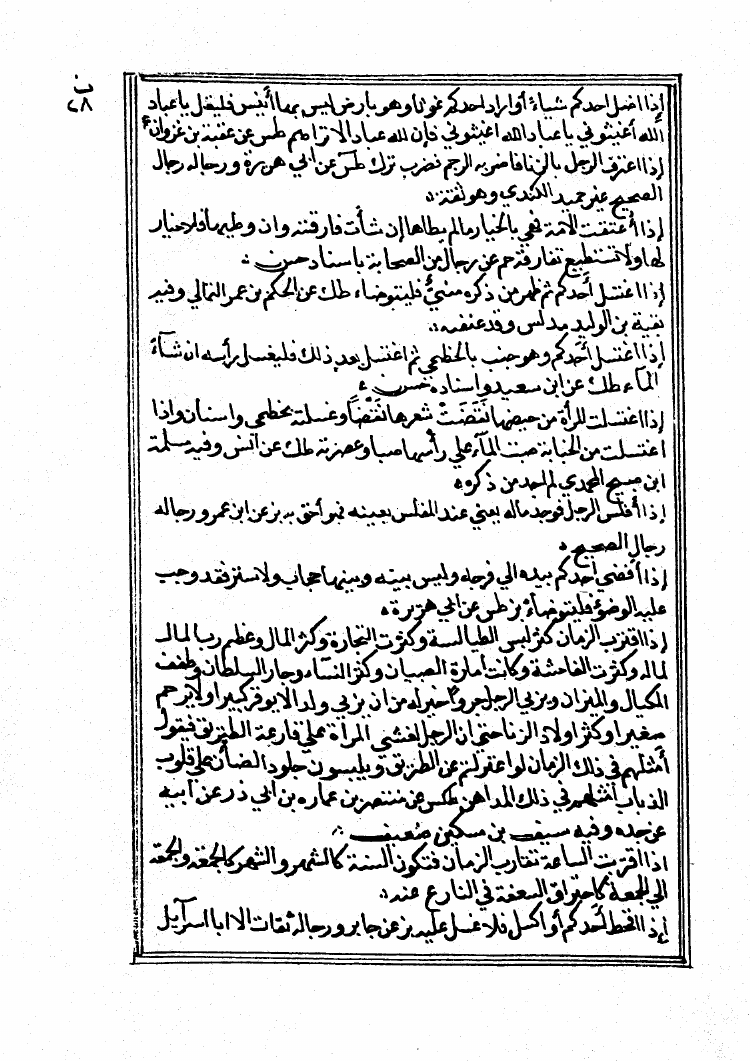 ب
٢٨
إذا اضل احدكم شياء أو اراد احدكم غوثا وهو بارض ليس بها أنيس فليقل يا عباد
الله أغيثوني يا عباد الله اغيثوني فإن لله عباد الا نراهم طس عن عتبة بن غزوان
إذا اعترف الرجل بالزنا فاضر به الرجم فضرب ترك طس عن ابي هريرة ورجاله رجال
الصحيح غير حميد الكندي وهو ثقة
إذا أعتقت الأمة فهي بالخيار مالم يطاها إن شأت فارقته وان وطيها فلا خيار
لها ولا تستطيع تفارقه حم عن رجال من الصحابة باسناد حسن
إذا اغتسل أحدكم ثم ظهر من ذكره شيئ فليتوضاء طك عن الحكم بن عمر الثمالي وفيه
بقية بن الوليد مدلس وقد عنعنه
إذا اغتسل أحدكم وهو جنب بالخطمي ثم اغتسل بعد ذلك فليغسل رأسه ان شآء
المآء طك عن ابن سعيد واسناده حسن
إذا اغتسلت المرأة من حيضها نقضت شعرها نقضا وغسلته بخطمي واسنان واذا
اغتسلت من الجنابة صبت المآء علي رأسها صبا وعصرته طك عن انس وفيه سلمة
ابن صبيح اليحمدي لم اجد من ذكره
إذا أفلس الرجل فوجد ماله يعني عند المفلس بعينه فهو أحق به بز عن ابن عمر ورجاله
رجال الصحيح
إذا أفضى أحدكم بيده الي فرجه وليس بينه وبينها حجاب ولا ستر فقد وجب
عليه الوضوء فليتوضاء بز طس عن ابي هريرة
إذا اقترب الزمان كثر لبس الطيالسة وكثرت التجارة وكثر المال وعظم رب المال
لماله وكثرت الفاحشة وكانت امارة الصبيان وكثر النسآء وجار السلطان وطفف
المكيال والميزان ويربي الرجل جروا خير له من ان يربي ولد الا يوقر كبير اولا يرحم
صغير او كثر اولاد الزنا حتى ان الرجل لغشى المرأة علي قارعة الطريق فيقول
أمثلهم في ذلك الزمان لو اعتزلتم عن الطريق ويلبسون جلود الضأن علي قلوب
الذياب أمثلهم في ذلك المداهن طكس عن منتصر بن عماره بن ابي ذر عن أبيه
عن جده وفيه سيف بن مسكين ضعيف
اذا اقربت الساعة تقارب الزمان فتكون السنة كالشهر والشهر كالجمعة والجمعة
الي الجمعة كاحتراق السعفة في النار ع عنه
إذا اقحط أحدكم أو اكسل فلا غسل عليه بز عن جابر ورجاله ثقات الا ابا اسرآيل